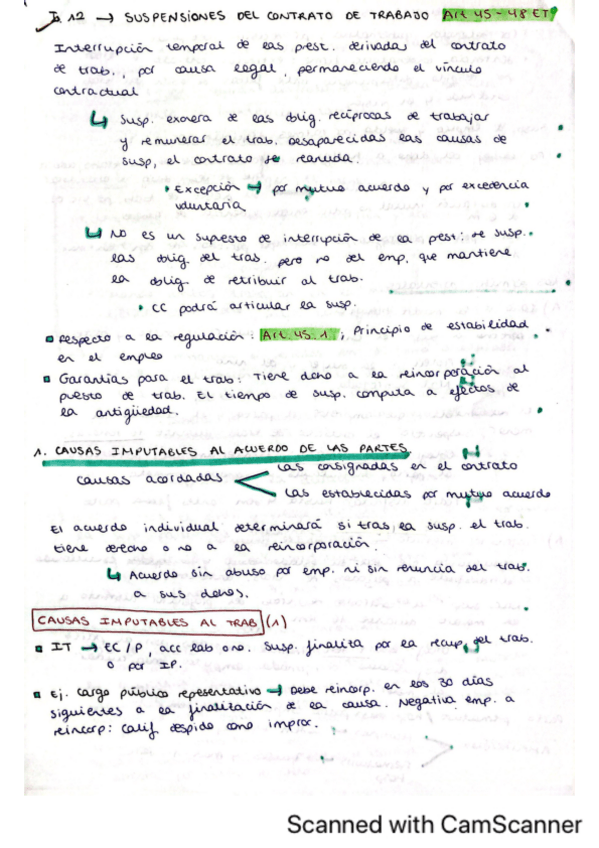 T. 12 → SUSPENSIONES DEL CONTRATO DE TRABAJO Art 45-48 ET
Interrupción temporal de las prest. derivadas del contrato
de trab., por causa legal, permaneciendo el vínculo
contractual
↳ Susp. exonera de las oblig. recíprocas de trabajar
y remunerar el trab. Desaparecidas las causas de
susp, el contrato se reanuda.
• Excepción → por mutuo acuerdo y por excedencia
voluntaria
↳ NO es un supuesto de interrupción de la prest: se susp.
las oblig. del trab. pero no del emp. que mantiene
la oblig. de retribuir al trab.
• CC podrá articular la susp.
▪ Respecto a la regulación: Art. 45.1; Principio de estabilidad
en el empleo
▪ Garantías para el trab: Tiene dcho a la reincorporación al
puesto de trab. El tiempo de susp. computa a efectos de
la antigüedad.
1. CAUSAS IMPUTABLES AL ACUERDO DE LAS PARTES
Las consignadas en el contrato
causas acordadas <
Las establecidas por mutuo acuerdo
El acuerdo individual determinará si tras la susp. el trab.
tiene derecho o no a la reincorporación.
↳ Acuerdo sin abuso por emp. ni sin renuncia del trab.
a sus dchos.
CAUSAS IMPUTABLES AL TRAB (1)
▪ IT → EC/P, acc lab o no. Susp. finaliza por la recup. del trab.
o por IP.
▪ Ej. cargo público representativo → Debe reincorp. en los 30 días
siguientes a la finalización de la causa. Negativa emp. a
reincorp: calif despido como improc.
Scanned with CamScanner